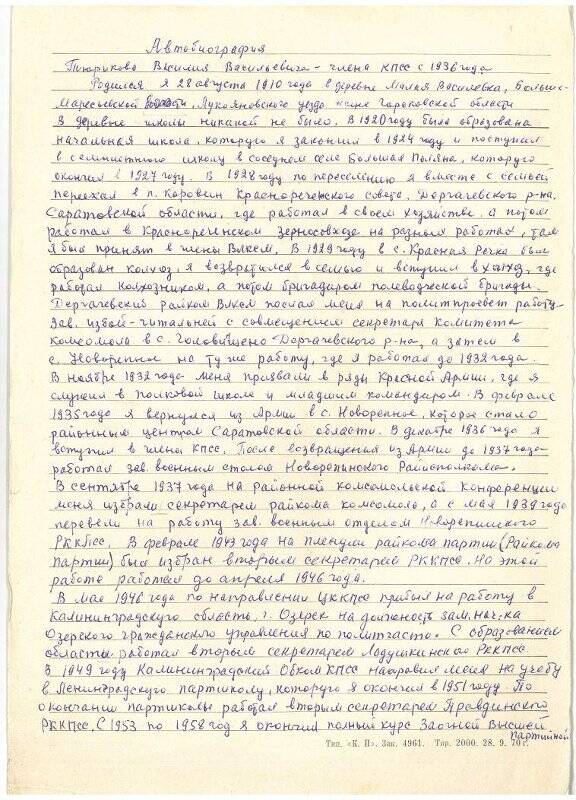 Автобиография
Тюрикова Василия Васильевича - члена КПСС с 1936 года.
Родился я 28 августа 1910 года в деревне Малая Василевка, Больше-
Маресьевской волости, Лукояновского уезда ныне Горьковской области
В деревне школы никакой не было. В 1920 году была образована
начальная школа, которую я закончил в 1924 году и поступил
в семилетнюю школу в соседнем селе Большая Поляна, которую
окончил в 1927 году. В 1928 году по переселению я вместе с семьей
переехал в п. Коровин Краснореченского совета, Дергачевского р-на,
Саратовской области, где работал в своем хозяйстве, а потом
работал в Краснореченском Зерносовхозе на разных работах, там
я был принят в члены ВЛКСМ. В 1929 году в с. Красная Речка был
образован колхоз, я возвратился в семью и вступил в колхоз, где
работал колхозником, а потом бригадиром полеводческой бригады.
Дергачевский райком ВЛКСМ послал меня на политпросвет работу-
Зав. избой-читальней с совмещением секретаря комитета
комсомола в с. Дергачевского р-на, а затем в
с. Новорепное на ту же работу, где я работал до 1932 года.
В ноябре 1932 года меня призвали в ряды Красной Армии, где я
служил в полковой школе и младшим командиром. В феврале
1935 года я вернулся из Армии в с. Новорепное, которое стало
районным центром Саратовской области. В декабре 1936 года я
вступил в члены КПСС. После возвращения из Армии до 1937 года
работал зав. военным столом Новорепинского Райисполкома.
В сентябре 1937 года на районной комсомольской конференции
меня избрали секретарем райкома комсомола, а с мая 1939 года
перевели на работу зав. военным отделом Новорепинского
РККПСС. В феврале 1943 года на пленуме райкома партии (Райкома
Партии) был избран вторым секретарем РККПСС. На этой
работе работал до апреля 1946 года.
В мае 1946 года по направлению ЦККПСС прибыл на работу в
Калининградскую область, г. Озерск на должность зам. нач-ка
Озерского гражданского управления по политчасти. С образованием
области работал вторым секретарем Ладушкинского РККПСС
В 1949 году Калининградский Обком КПСС направил меня на учебу
в Ленинградскую партшколу, которую я окончил в 1951 году. По
окончании партшколы работал вторым секретарем Правдинского
РККПСС. С 1953 по 1958 год я окончил полный курс Заочной Высшей
партийной
Тип. «К. П». Зак. 4961. Тир. 2000. 28. 9. 70 г.